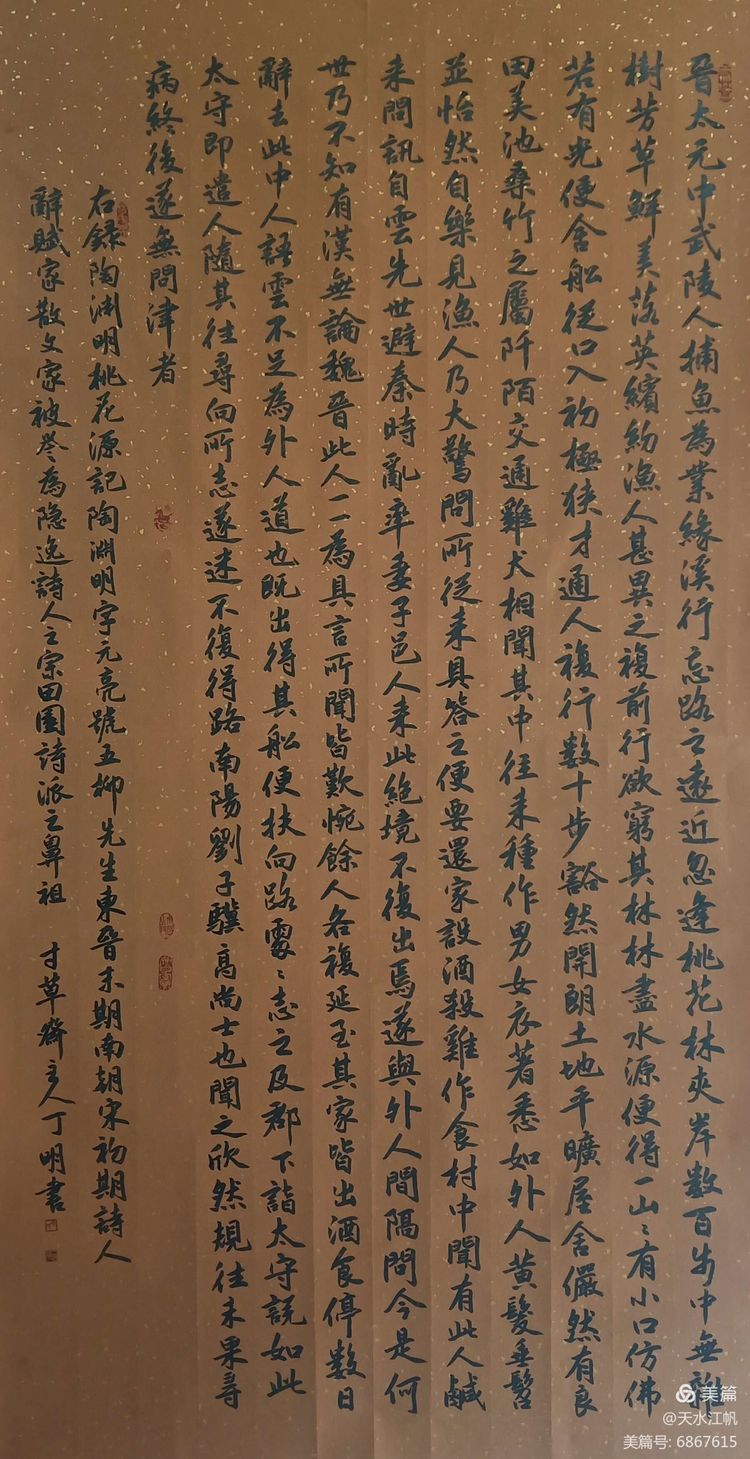 晉太元中武陵人捕魚為業緣溪行忘路之遠近忽逢桃花林夾岸数百步中無雜
樹芳草鮮美落英繽紛漁人甚異之複前行欲窮其林林盡水源便得一山〻有小口仿佛
若有光便舍船從口入初極狹才通人複行数十步豁然開朗土地平曠屋舍儼然有良
田美池桑竹之屬阡陌交通雞犬相聞其中往来種作男女衣著悉如外人黄髮垂髫
並怡然自樂見漁人乃大驚問所從来具答之便要還家設酒殺雞作食村中聞有此人鹹
来問訊自雲先世避秦時亂率妻子邑人来此絶境不復出焉遂與外人間隔問今是何
世乃不知有漢無論魏晉此人一一為具言所聞皆歎惋餘人各複延至其家皆出酒食停数日
辭去此中人語雲不足為外人道也既出得其船便扶向路處〻志之及郡下詣太守説如此
太守即遣人隨其往尋向所志遂迷不復得路南陽劉子驥高尚士也聞之欣然規往未果尋
病終後遂無問津者
右錄陶渊明桃花源記陶淵明字元亮號五柳先生東晉末期南朝宋初期詩人
辭賦家散文家被誉為隐逸詩人之宗田園詩派之鼻祖 寸草齋主人丁明書
美篇
@天水江帆
美篇号: 6867615